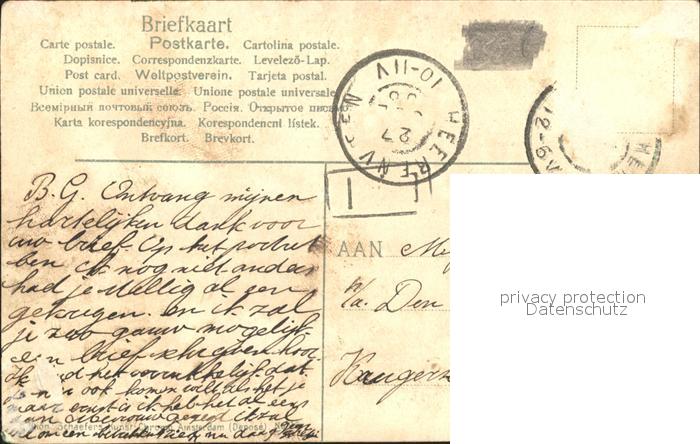 Briefkaart
Carte postale. Postkarte. Cartolina postale.
Dopisnice. Correspondenzkarte. Levelező-Lap.
Post card. Weltpostverein. Tarjeta postal.
Union postale universelle. Unione postale universale
Всемірный почтовый союзъ. Россія. Открытое письмо
Karta korespondencyjna. Korespondencní lístek.
Brefkort. Brevkort.
HEERENVEEN
VII-10
27
12-6 N
B. G. Ontvang mijnen
hartelijken dank voor
uw brief. Op het portret
ben ik nog niet anders
had je stellig al een
gekregen. en ik zal
je zoo gauw mogelijk
een brief schrijven hoor
het verrukkelijk dat
je ook komen wilt als het je
maar ernst is ik heb het al eens
aan gezegd ik zal
om een briefje nu dag
Schaefers Kunst-Chromo Amsterdam (Deposé)
AAN
p/a. Den
privacy protection
Datenschutz